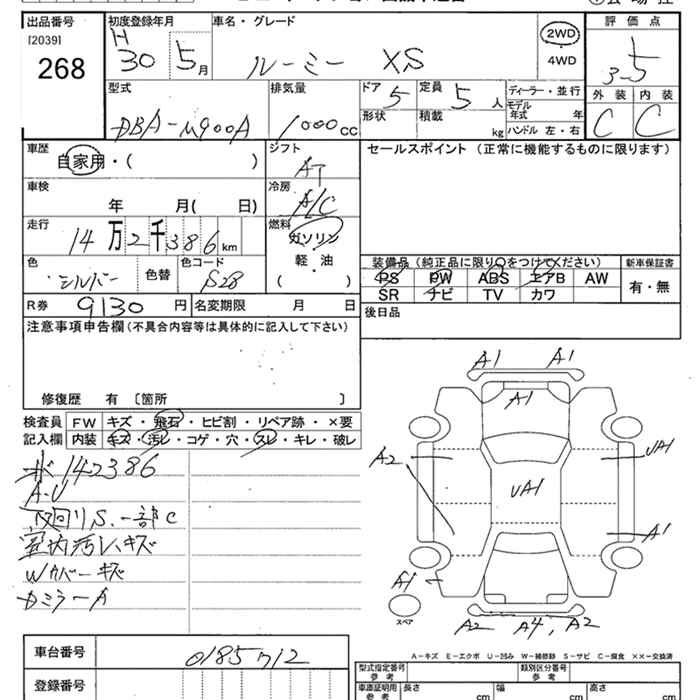 出品番号 初度登録年月 車名・グレード 評価点
[2039] H 2WD
268 30 5月 ルーミー XS 4WD 3-5
外装 内装
C C
型式 排気量 ドア 5 定員 5人 ディーラー・並行
DBA-M900A 1000cc 形状 積載 kg モデル年式 年
ハンドル 左・右
車歴 シフト セールスポイント (正常に機能するものに限ります)
自家用・( ) AT
車検 冷房
年 月( 日) A/C
走行 燃料
14万2千386km ガソリン
軽・油
( )
色 色替 色コード
シルバー S28
装備品(純正品に限り○をつけてください) 新車保証書
PS PW ABS エアB AW 有・無
SR ナビ TV カワ
R券 9130円 名変期限 月 日 後日品
注意事項申告欄(不具合内容等は具体的に記入して下さい)
修復歴 有 〔箇所 〕
検査員 FW キズ・飛石・ヒビ割・リペア跡・×要
記入欄 内装 キズ・汚レ・コゲ・穴・スレ・キレ・破レ
142386
A・U
下回りS、一部C
室内汚レ、キズ
Wカバーキズ
ドミラーA
A1 A1
A1
A2 UA1 UA1
A1
A1
スペア
A2 A4, A2
A-キズ E-エクボ U-凹み W-補修跡 S-サビ C-腐食 ××-交換済
車台番号 0185712
登録番号
型式指定番号 参考 類別区分番号 参考
車庫証明用 参考 長さ cm 幅 cm 高さ cm